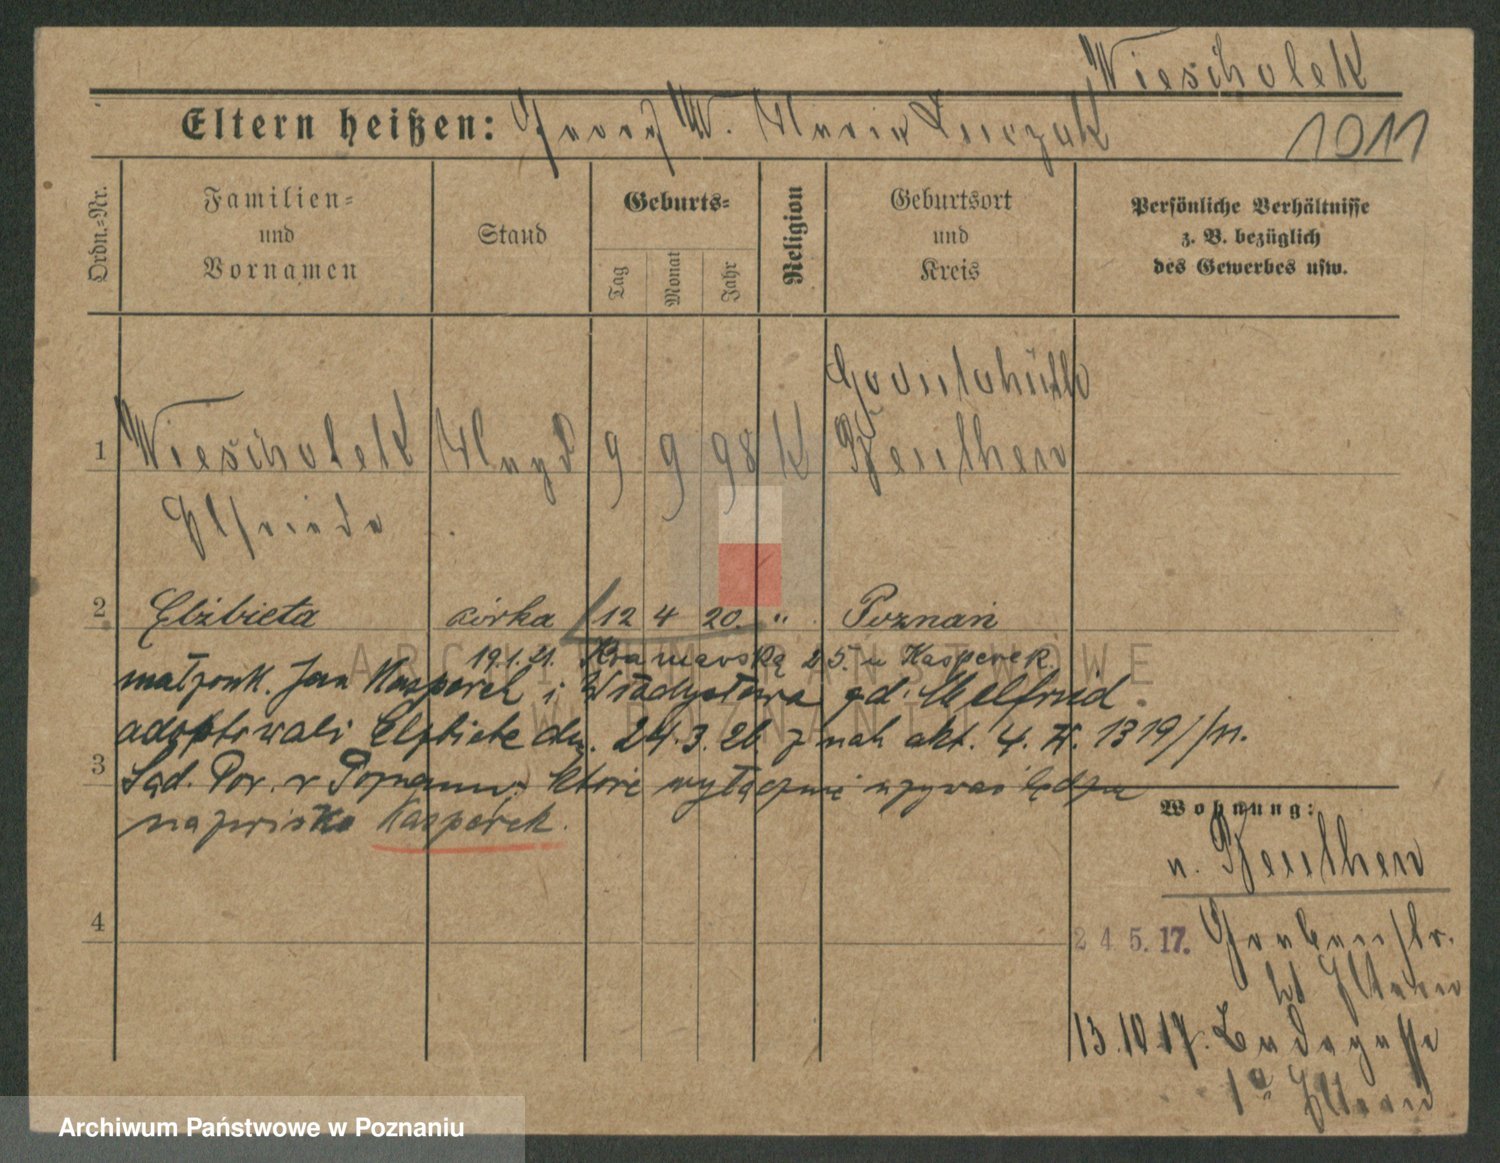 Wiescholek
Eltern heißen: Josef W. Maria Luczak
1011
Ordn.-Nr.
Familien- und Vornamen
Stand
Geburts-
Tag
Monat
Jahr
Religion
Geburtsort und Kreis
Persönliche Verhältnisse
z. B. bezüglich
des Gewerbes usw.
Godulahütte
1 Wiescholek Magd 9 9 98 K Beuthen
Elfriede
2 Elżbieta córka 12 4 20. " Poznań
19.1.21. Kramarską 25. u Kasperek.
małżonk. Jan Kasperek i Władysława
adoptowali Elżbietę dn. 24.3.26 akt. 4. 1319
3 Sąd. Pow. w Poznaniu które wyłącznie używać będzie
nazwisko Kasperek.
Wohnung:
n. Beuthen
4
24.5.17. Grabenstr.
b/ Eltern
13.10.17. Badegasse
1a Eltern
ARCHIWUM PAŃSTWOWE
W POZNANIU
Archiwum Państwowe w Poznaniu